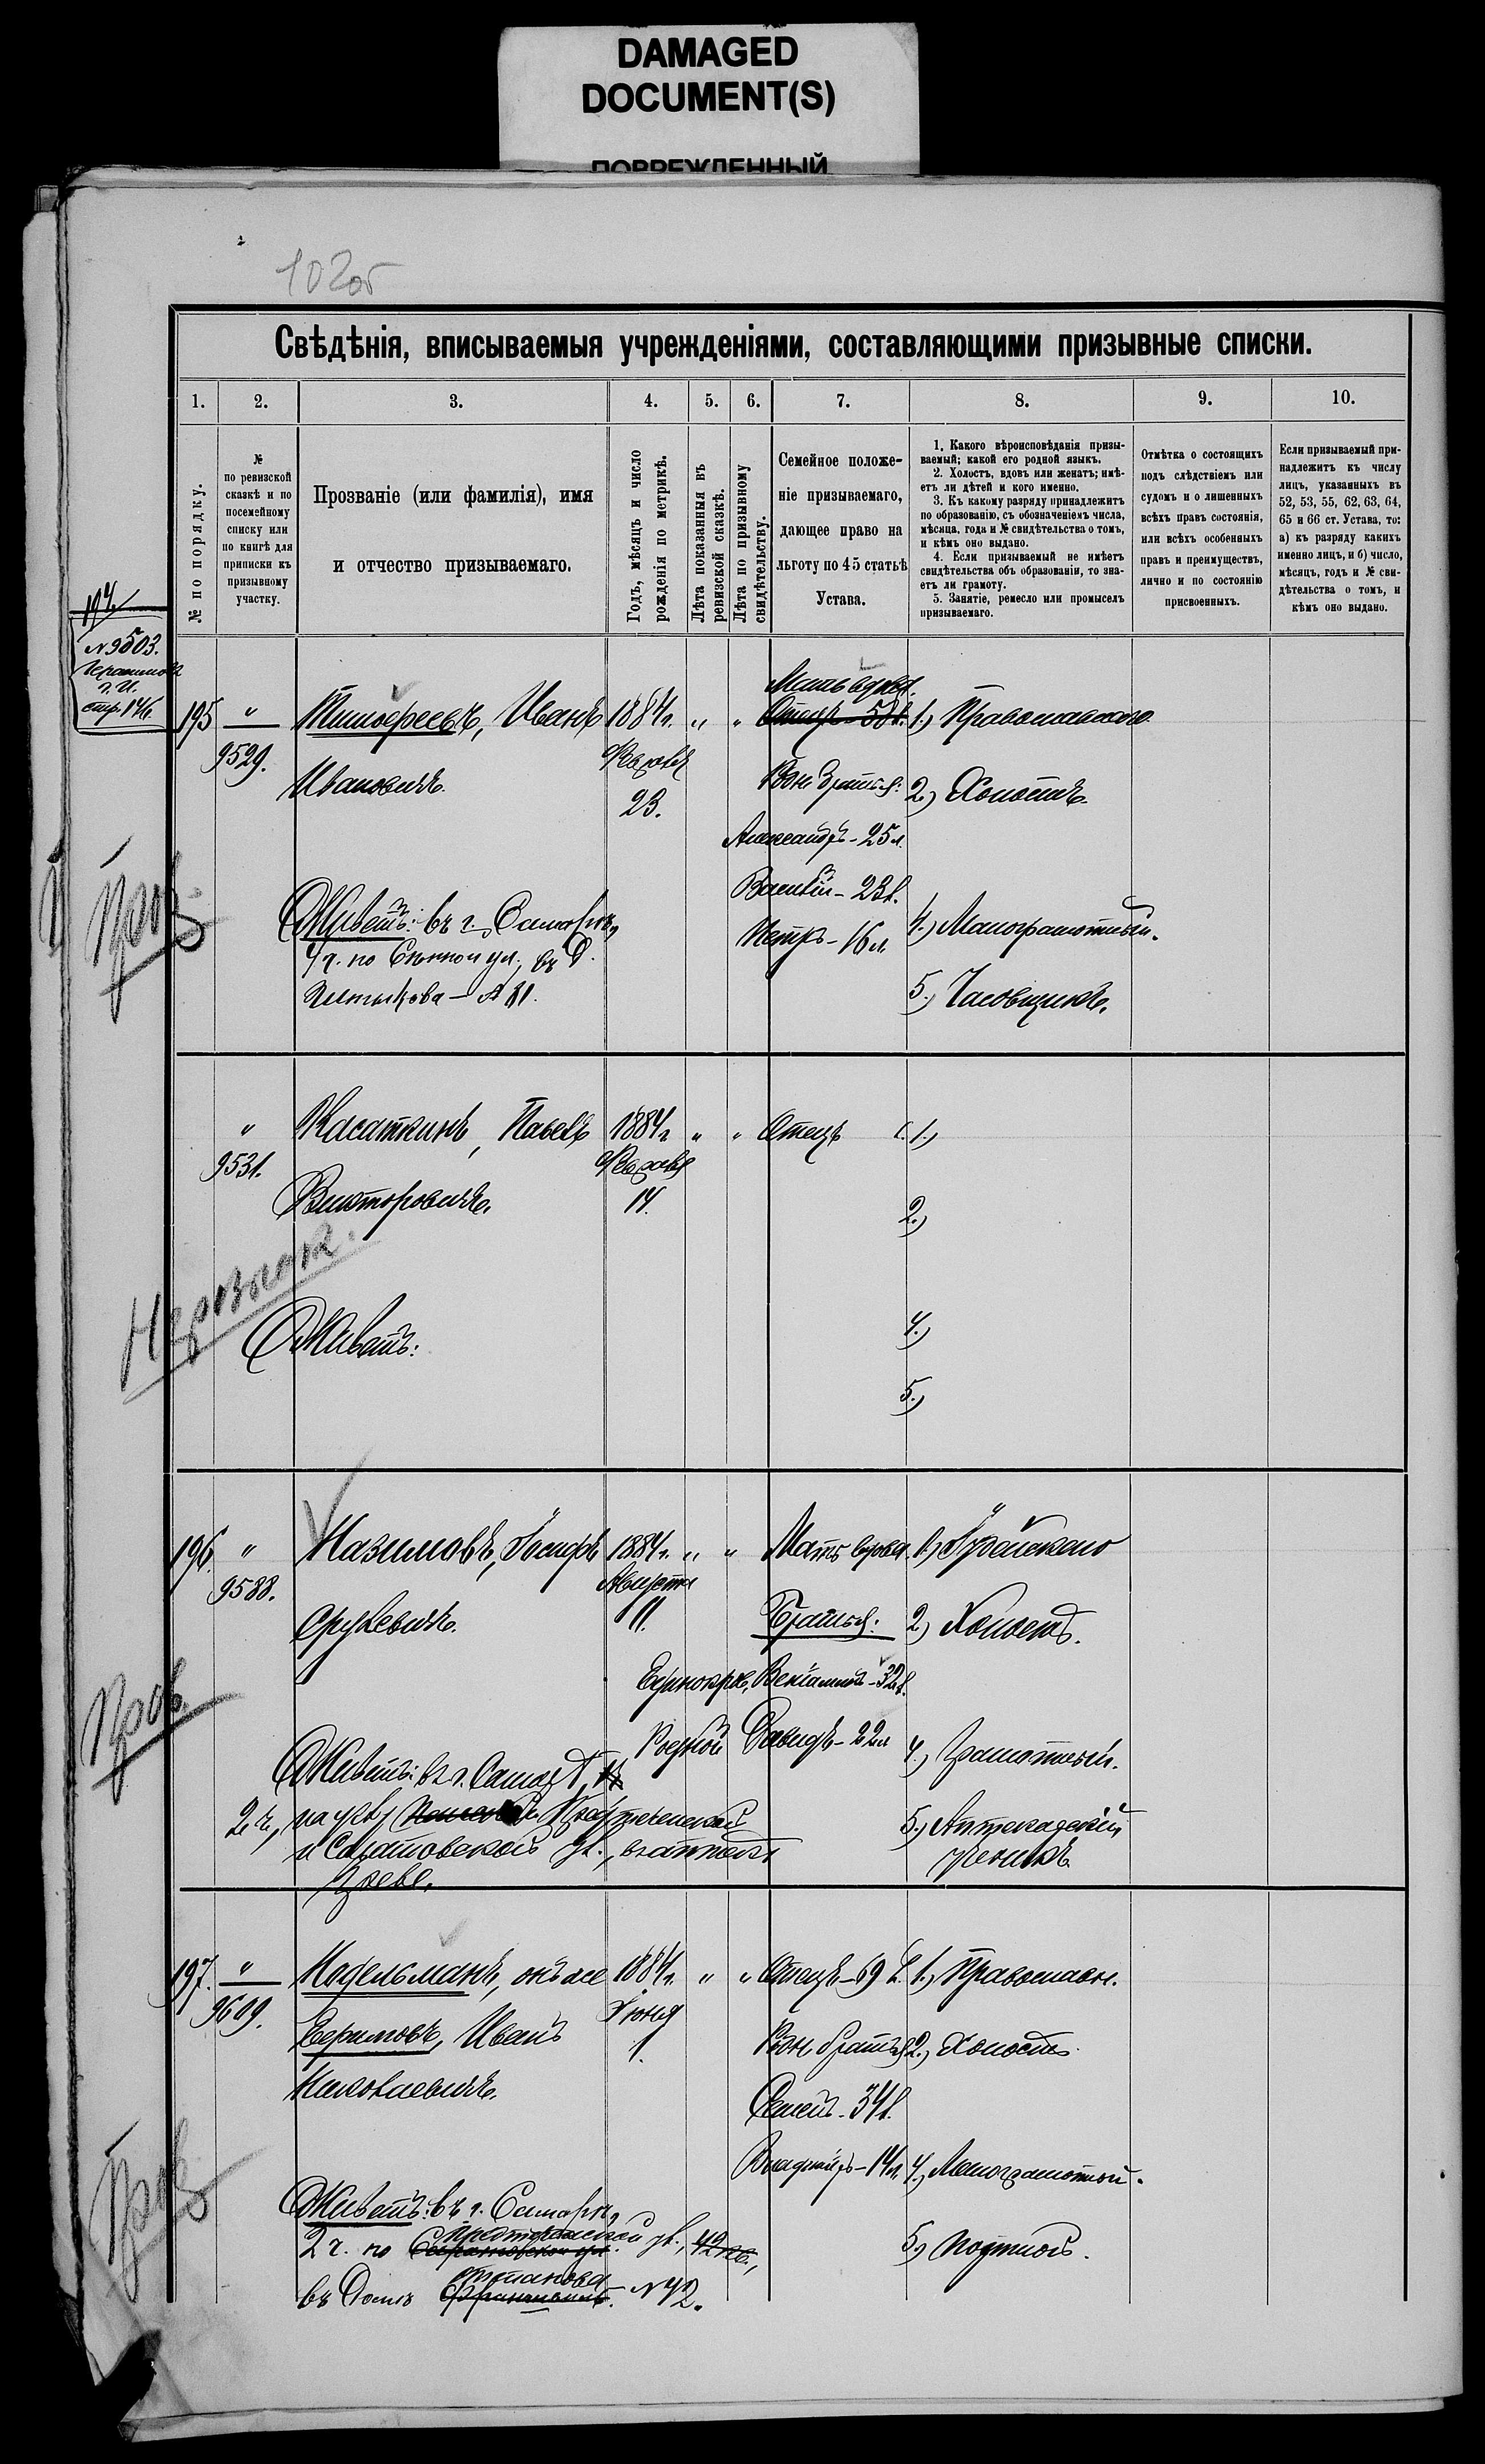 DAMAGED
DOCUMENT(S)
ПОВРЕЖДЕННЫЙ
102об
Свѣдѣнія, вписываемыя учрежденіями, составляющими призывные списки.
1. 2. 3. 4. 5. 6. 7. 8. 9. 10.
№ по порядку.
№
по ревизской
сказкѣ и по
посемейному
списку или
по книгѣ для
приписки къ
призывному
участку.
Прозваніе (или фамилія), имя
и отчество призываемаго.
Годъ, мѣсяцъ и число
рожденія по метрикѣ.
Лѣта показанныя въ
ревизской сказкѣ.
Лѣта по призывному
свидѣтельству.
Семейное положе-
ніе призываемаго,
дающее право на
льготу по 45 статьѣ
Устава.
1. Какого вѣроисповѣданія призы-
ваемый; какой его родной языкъ.
2. Холостъ, вдовъ или женатъ; имѣ-
етъ ли дѣтей и кого именно.
3. Къ какому разряду принадлежитъ
по образованію, съ обозначеніемъ числа,
мѣсяца, года и № свидѣтельства о томъ,
и кѣмъ оно выдано.
4. Если призываемый не имѣетъ
свидѣтельства объ образованіи, то зна-
етъ ли грамоту.
5. Занятіе, ремесло или промыселъ
призываемаго.
Отмѣтка о состоящихъ
подъ слѣдствіемъ или
судомъ и о лишенныхъ
всѣхъ правъ состоянія,
или всѣхъ особенныхъ
правъ и преимуществъ,
лично и по состоянію
присвоенныхъ.
Если призываемый при-
надлежитъ къ числу
лицъ, указанныхъ въ
52, 53, 55, 62, 63, 64,
65 и 66 ст. Устава, то:
а) къ разряду какихъ
именно лицъ, и б) число,
мѣсяцъ, годъ и № сви-
дѣтельства о томъ, и
кѣмъ оно выдано.
194
№ 9503.
Герасимовъ
г. И.
стр. 146.
195 " 9529.
Тимофеевъ, Иванъ
Ивановичъ.
1884 г.
Февраля
23.
" "
Мать вдова.
Отецъ - 58 л.
Родн. братья:
Александръ - 25 л.
Василій - 23 г.
Петръ - 16 л.
1.) Православнаго.
2.) Холостъ.
4.) Малограмотный.
5.) Часовщикъ.
Живетъ: въ г. Самарѣ,
4 ч. по Сѣнной ул., въ д.
№ 81.
Пров.
" 9531.
Касаткинъ, Павелъ
Викторовичъ.
1884 г.
Февраля
14.
" "
Отецъ
1.)
2.)
4.)
5.)
Живетъ:
196. " 9588.
Назимовъ, Іосифъ
Срулевичъ.
1884 г.
Августа
11.
" "
Мать вдова.
Братья:
Единокров. Веніаминъ - 32 г.
Родной Давидъ - 22 л.
1.) Іудейскаго
2.) Холостъ.
4.) Грамотный.
5.) Аптекарскій
ученикъ.
Живетъ: въ г. Самарѣ,
2 ч., на углу Предтеченской
и Саратовской ул., въ аптекѣ
Греве.
Пров.
197. " 9609.
Надельманъ, онъ же
Ефимовъ, Иванъ
Николаевичъ.
1884 г.
Іюня
1.
" "
Отецъ - 69 л.
Родн. братья
Семенъ - 34 г.
Владиміръ - 14 л.
1.) Православн.
2.) Холостъ.
4.) Малограмотный.
5.) Портной.
Живетъ: въ г. Самарѣ,
2 ч. по Предтеченской ул.,
въ домѣ № 42.
Пров.